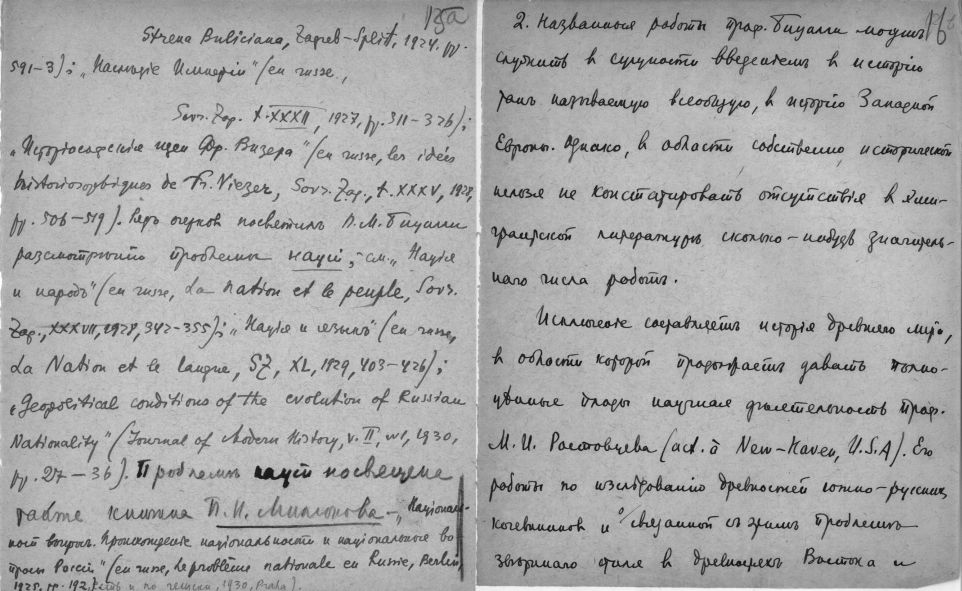 15a
Strena Buliciana, Zagreb–Split, 1924. pp.
591–3); „Наслѣдіе Имперіи" (en russe.,
Sovr. Zap. t. XXXII, 1927, pp. 311–326);
„Исторіософскія идеи Фр. Визера" (en russe, les idées
historiosophiques de Fr. Viezer, Sovr. Zap., t. XXXV, 1928,
pp. 506–519). Рядъ очерковъ посвятилъ П. М. Бицилли
разсмотрѣнію проблемы націи, см. „Нація
и народъ" (en russe, La nation et le peuple, Sovr.
Zap., XXXVII, 1928, 342–355); „Нація и языкъ" (en russe,
La Nation et la langue, SZ, XL, 1929, 403–426);
„Geopolitical conditions of the evolution of Russian
Nationality" (Journal of Modern History, v. II, №1, 1930,
pp. 27–36). Проблемѣ націи посвящена
также книга П. Н. Милюкова – „Національ-
ный вопросъ. Происхожденіе національности и національные во-
просы Россіи" (en russe, Le problème nationale en Russie, Berlin,
1925. pp. 192. [есть и по чешски, 1930, Praha].
16
2. Названныя работы проф. Бицилли могутъ
служить въ сущности введеніемъ въ исторію
такъ называемую всеобщую, въ исторію Западной
Европы. Однако, въ области собственно исторической
нельзя не констатировать отсутствія въ эми-
грантской литературѣ сколько-нибудь значитель-
наго числа работъ.
Исключеніе составляетъ исторія древняго міра,
въ области которой продолжаетъ давать полно-
цѣнные плоды научная дѣятельность проф.
М. И. Ростовцева (act. à New-Haven, U.S.A). Его
работы по изслѣдованію древностей южно-русскихъ
кочевниковъ и о связанной съ этимъ проблемѣ
звѣринаго стиля въ древностяхъ Востока и